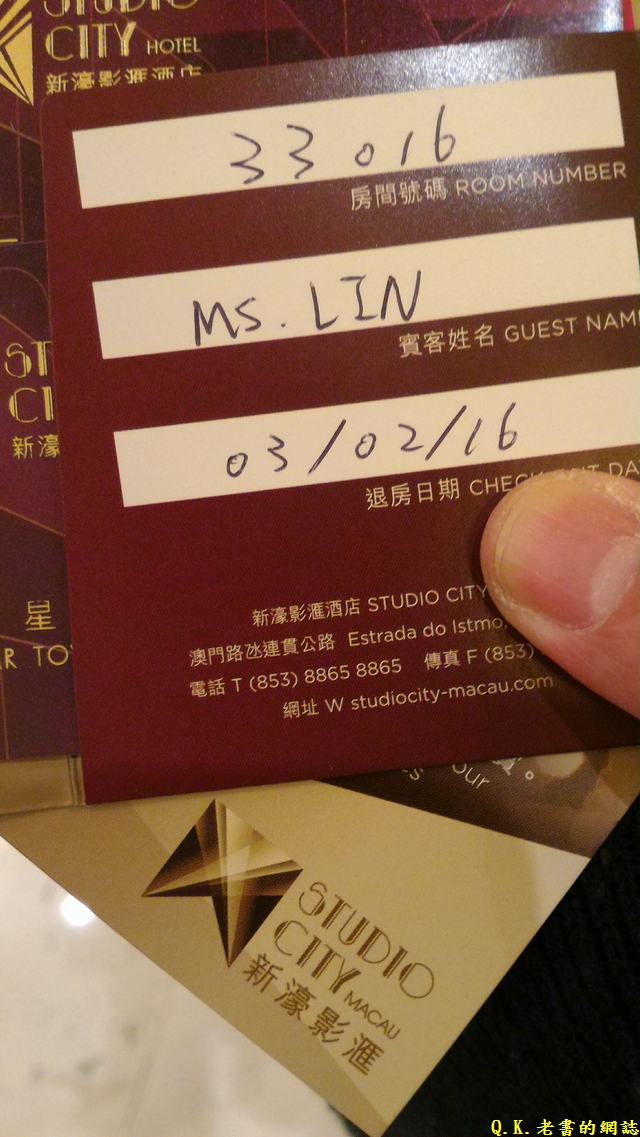 STUDIO
CITY HOTEL
新濠影滙酒店
33016
房間號碼 ROOM NUMBER
MS. LIN
賓客姓名 GUEST NAME
03/02/16
退房日期 CHECK
ST
CI
新濠
星
新濠影滙酒店 STUDIO CITY
澳門路氹連貫公路 Estrada do Istmo,
電話 T (853) 8865 8865 傳真 F (853)
網址 W studiocity-macau.com
our
STUDIO
CITY
MACAU
新濠影滙
Q.K.老書的網誌